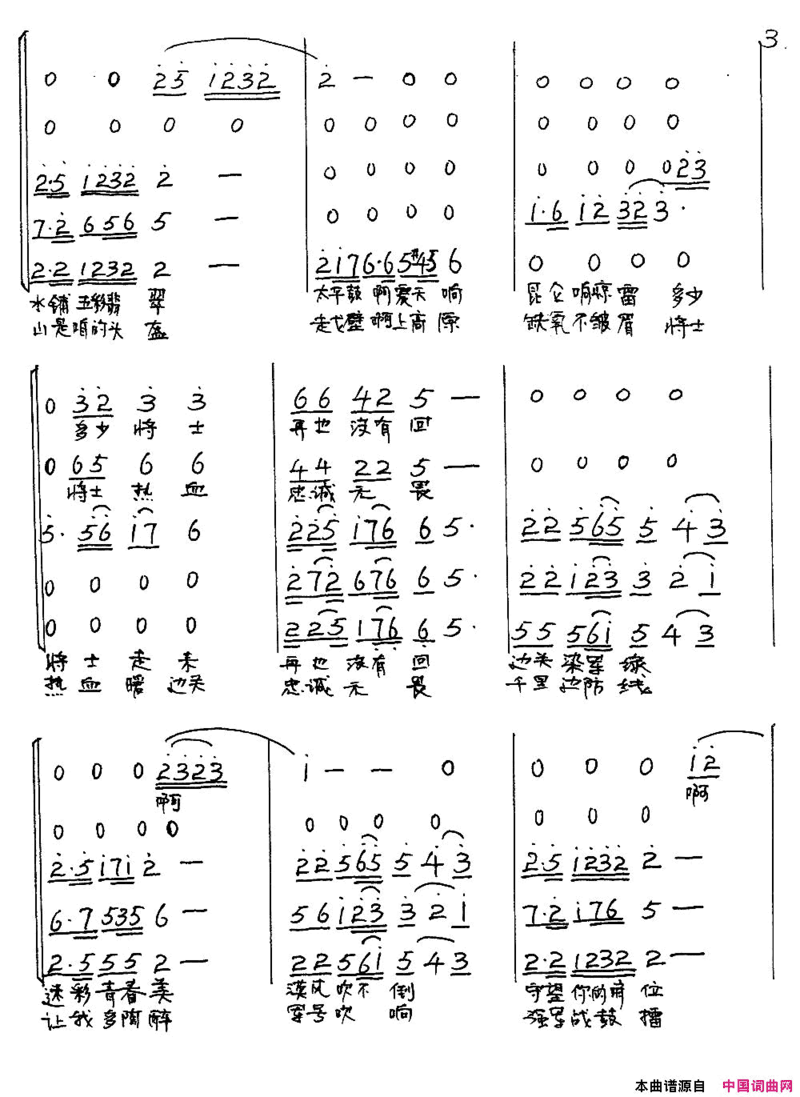 3.
0 0 2̇5̇ 1̇2̇3̇2̇ | 2̇ — 0 0 | 0 0 0 0
0 0 0 0 | 0 0 0 0 | 0 0 0 0
2̇·5̇ 1̇2̇3̇2̇ 2̇ — | 0 0 0 0 | 0 0 0 0 2̇3̇
7·2̇ 656 5 — | 0 0 0 0 | 1̇·6 1̇2̇ 3̇2̇ 3̇·
2·2 1232 2 — | 2̇1̇76·6 5#45 6 | 0 0 0 0
水铺五彩翡 翠 太平鼓 啊震天 响 昆仑响惊雷 多少
山是咱的头 盔 走戈壁 啊上高 原 缺氧不皱眉 将士
0 3̇2̇ 3̇ 3̇ | 66 42 5 — | 0 0 0 0
多少 将 士 再也 没有 回
0 65 6 6 | 44 22 5 — | 0 0 0 0
将士 热 血 忠诚 无 畏
5̇· 5̇6̇ 1̇7 6 | 2̇2̇5̇ 1̇76 6 5· | 2̇2̇ 5̇6̇5̇ 5̇ 4̇ 3̇
0 0 0 0 | 2̇72̇ 676 6 5· | 2̇2̇ 1̇2̇3̇ 3̇ 2̇ 1̇
0 0 0 0 | 225 176 6 5· | 55 561̇ 5 4 3
将 士 走 来 再也 没有 回 边关 染军 绿
热 血 暖 边关 忠诚 无 畏 千里 边防 线
0 0 0 2̇3̇2̇3̇ | 1̇ — — 0 | 0 0 0 1̇2̇
啊 啊
0 0 0 0 | 0 0 0 0 | 0 0 0
2̇·5̇ 1̇71̇ 2̇ — | 2̇2̇ 5̇6̇5̇ 5̇ 4̇ 3̇ | 2̇·5̇ 1̇2̇3̇2̇ 2̇ —
6·7 535 6 — | 56 1̇2̇3̇ 3̇ 2̇ 1̇ | 7·2̇ 1̇76 5 —
2·5 55 2 — | 22 561̇ 5 4 3 | 2·2 1232 2 —
迷彩青春 美 漠风吹不 倒 守望你的哨 位
让我多陶 醉 军号吹 响 强军战鼓 擂
本曲谱源自 中国词曲网